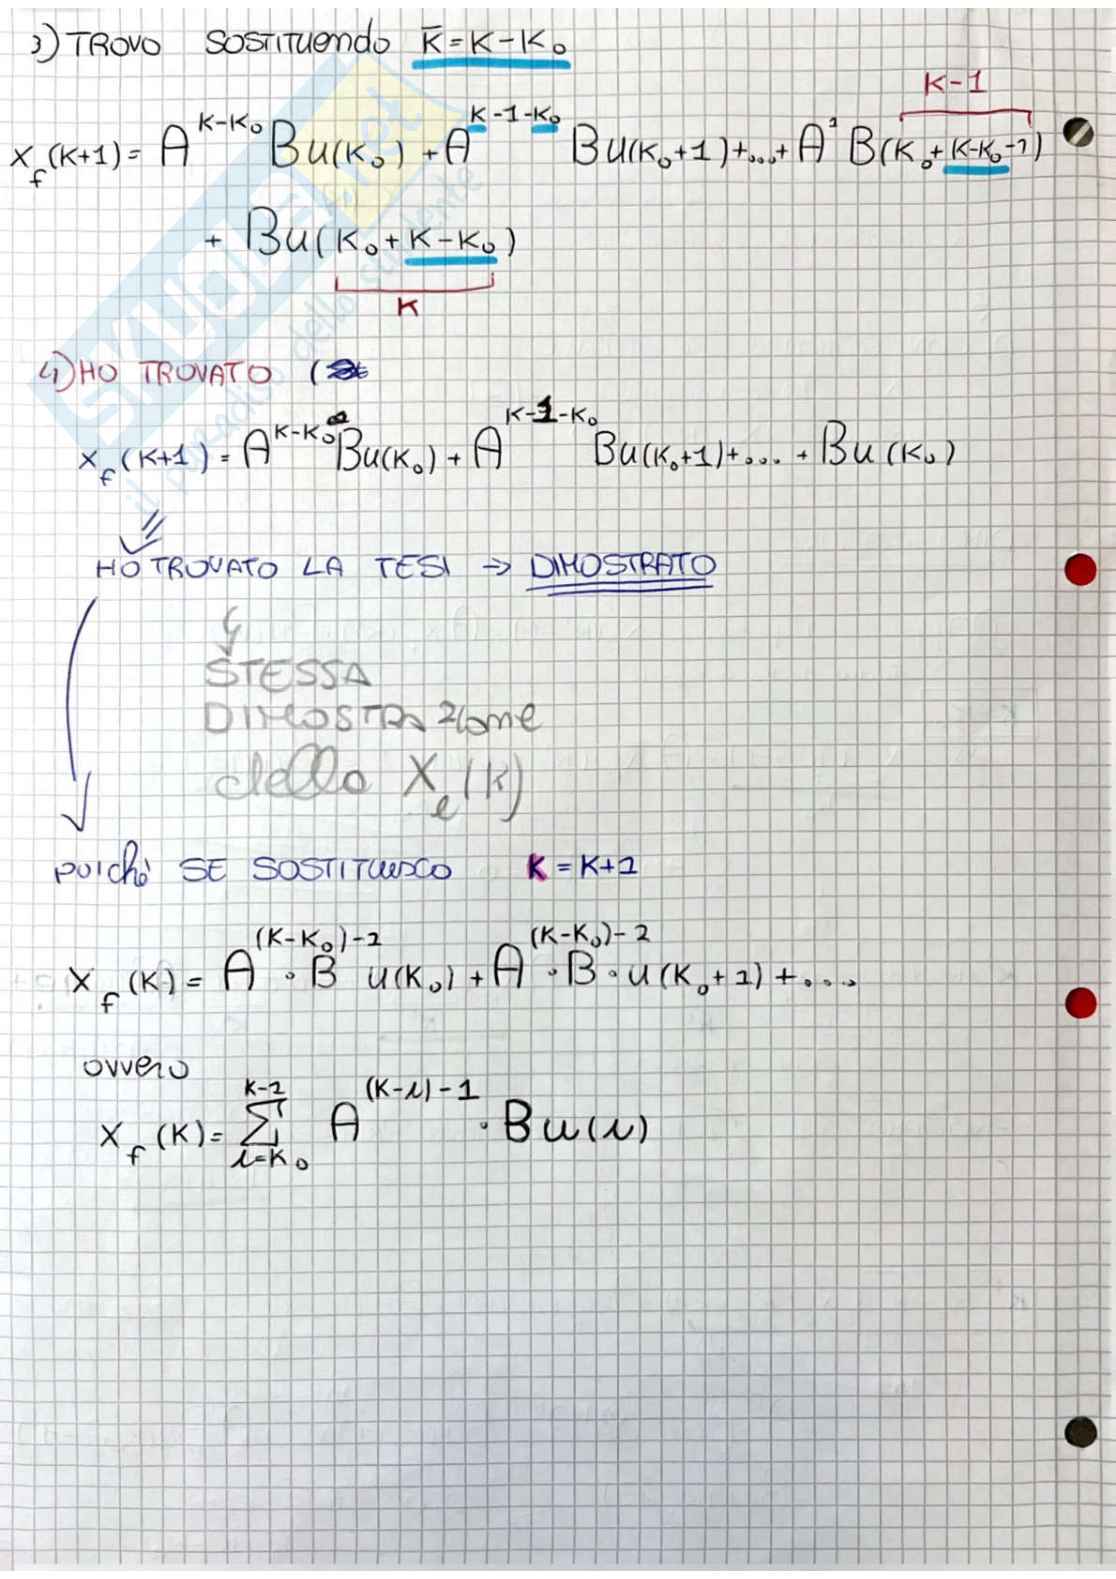 3) TROVO SOSTITUENDO K̅ = K - K₀
K-1
x_f(K+1) = A^(K-K₀) Bu(K₀) + A^(K-1-K₀) Bu(K₀+1) + ... + A¹ B(K₀+K-K₀-1)
+ Bu(K₀+K-K₀)
K
4) HO TROVATO (
x_f(K+1) = A^(K-K₀) Bu(K₀) + A^(K-1-K₀) Bu(K₀+1) + .... + Bu(K₀)
HO TROVATO LA TESI → DIMOSTRATO
STESSA
DIMOSTRAZIONE
dello X_e(K)
poiché SE SOSTITUISCO K = K+1
x_f(K) = A^((K-K₀)-1) · B u(K₀) + A^((K-K₀)-2) · B · u(K₀+1) + ....
ovvero
x_f(K) = Σ_(i=K₀)^(K-1) A^((K-i)-1) · Bu(i)
SKUOLA.net